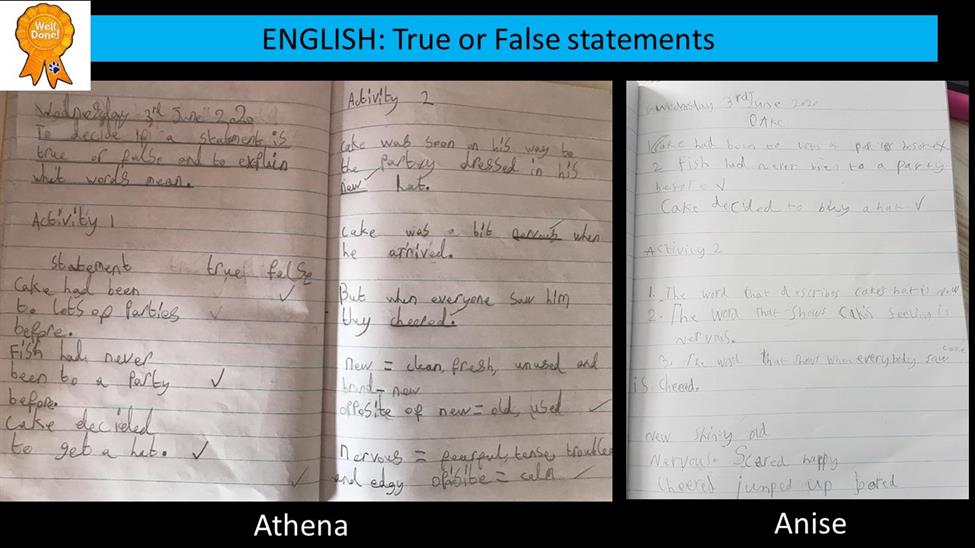 Well Done!
ENGLISH: True or False statements
Wednesday 3rd June 2020
To decide if a statement is
true or false and to explain
what words mean.
Activity 1
Statement true false
Cake had been
to lots of parties
before.
Fish had never
been to a party
before.
Cake decided
to get a hat.
Activity 2
Cake was seen on his way to
the party dressed in his
new hat.
Cake was a bit nervous when
he arrived.
But when everyone saw him
they cheered.
New = clean, fresh, unused and
brand-new
opposite of new = old, used
Nervous = fearful, tense, troubled
and edgy opisite = calm
Wednesday 3rd June 2020
Cake had been to
2 Fish had never bien to a party
Cake decided to buy a hat
Activity 2
1. The word that describes cakes hat is new
2. The word that shows Caks feeling is
nervous.
3. The word that shows when everybody saw cake
is Cheerd.
New shiny old
Nervous. Scared happy
Cheered jumped up bored
Athena
Anise